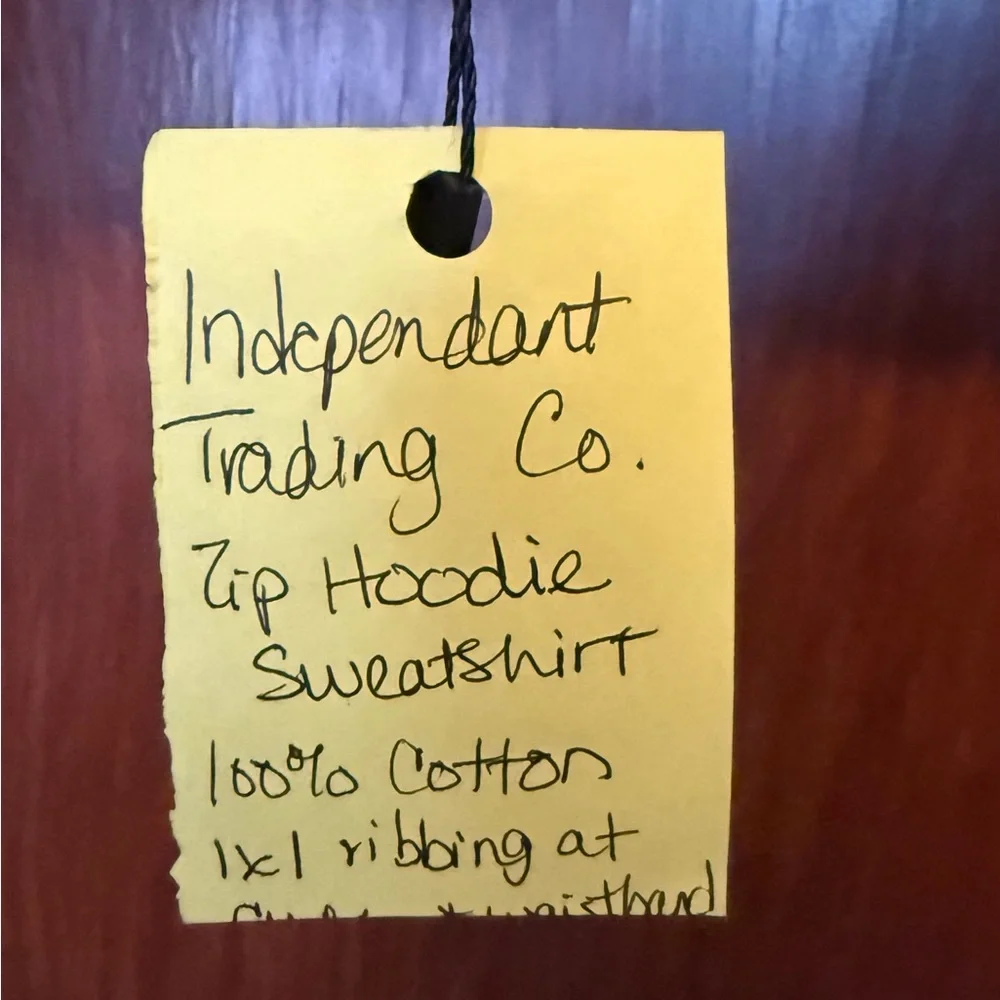 Independant
Trading Co.
Zip Hoodie
Sweatshirt
100% Cotton
1x1 ribbing at
waistband